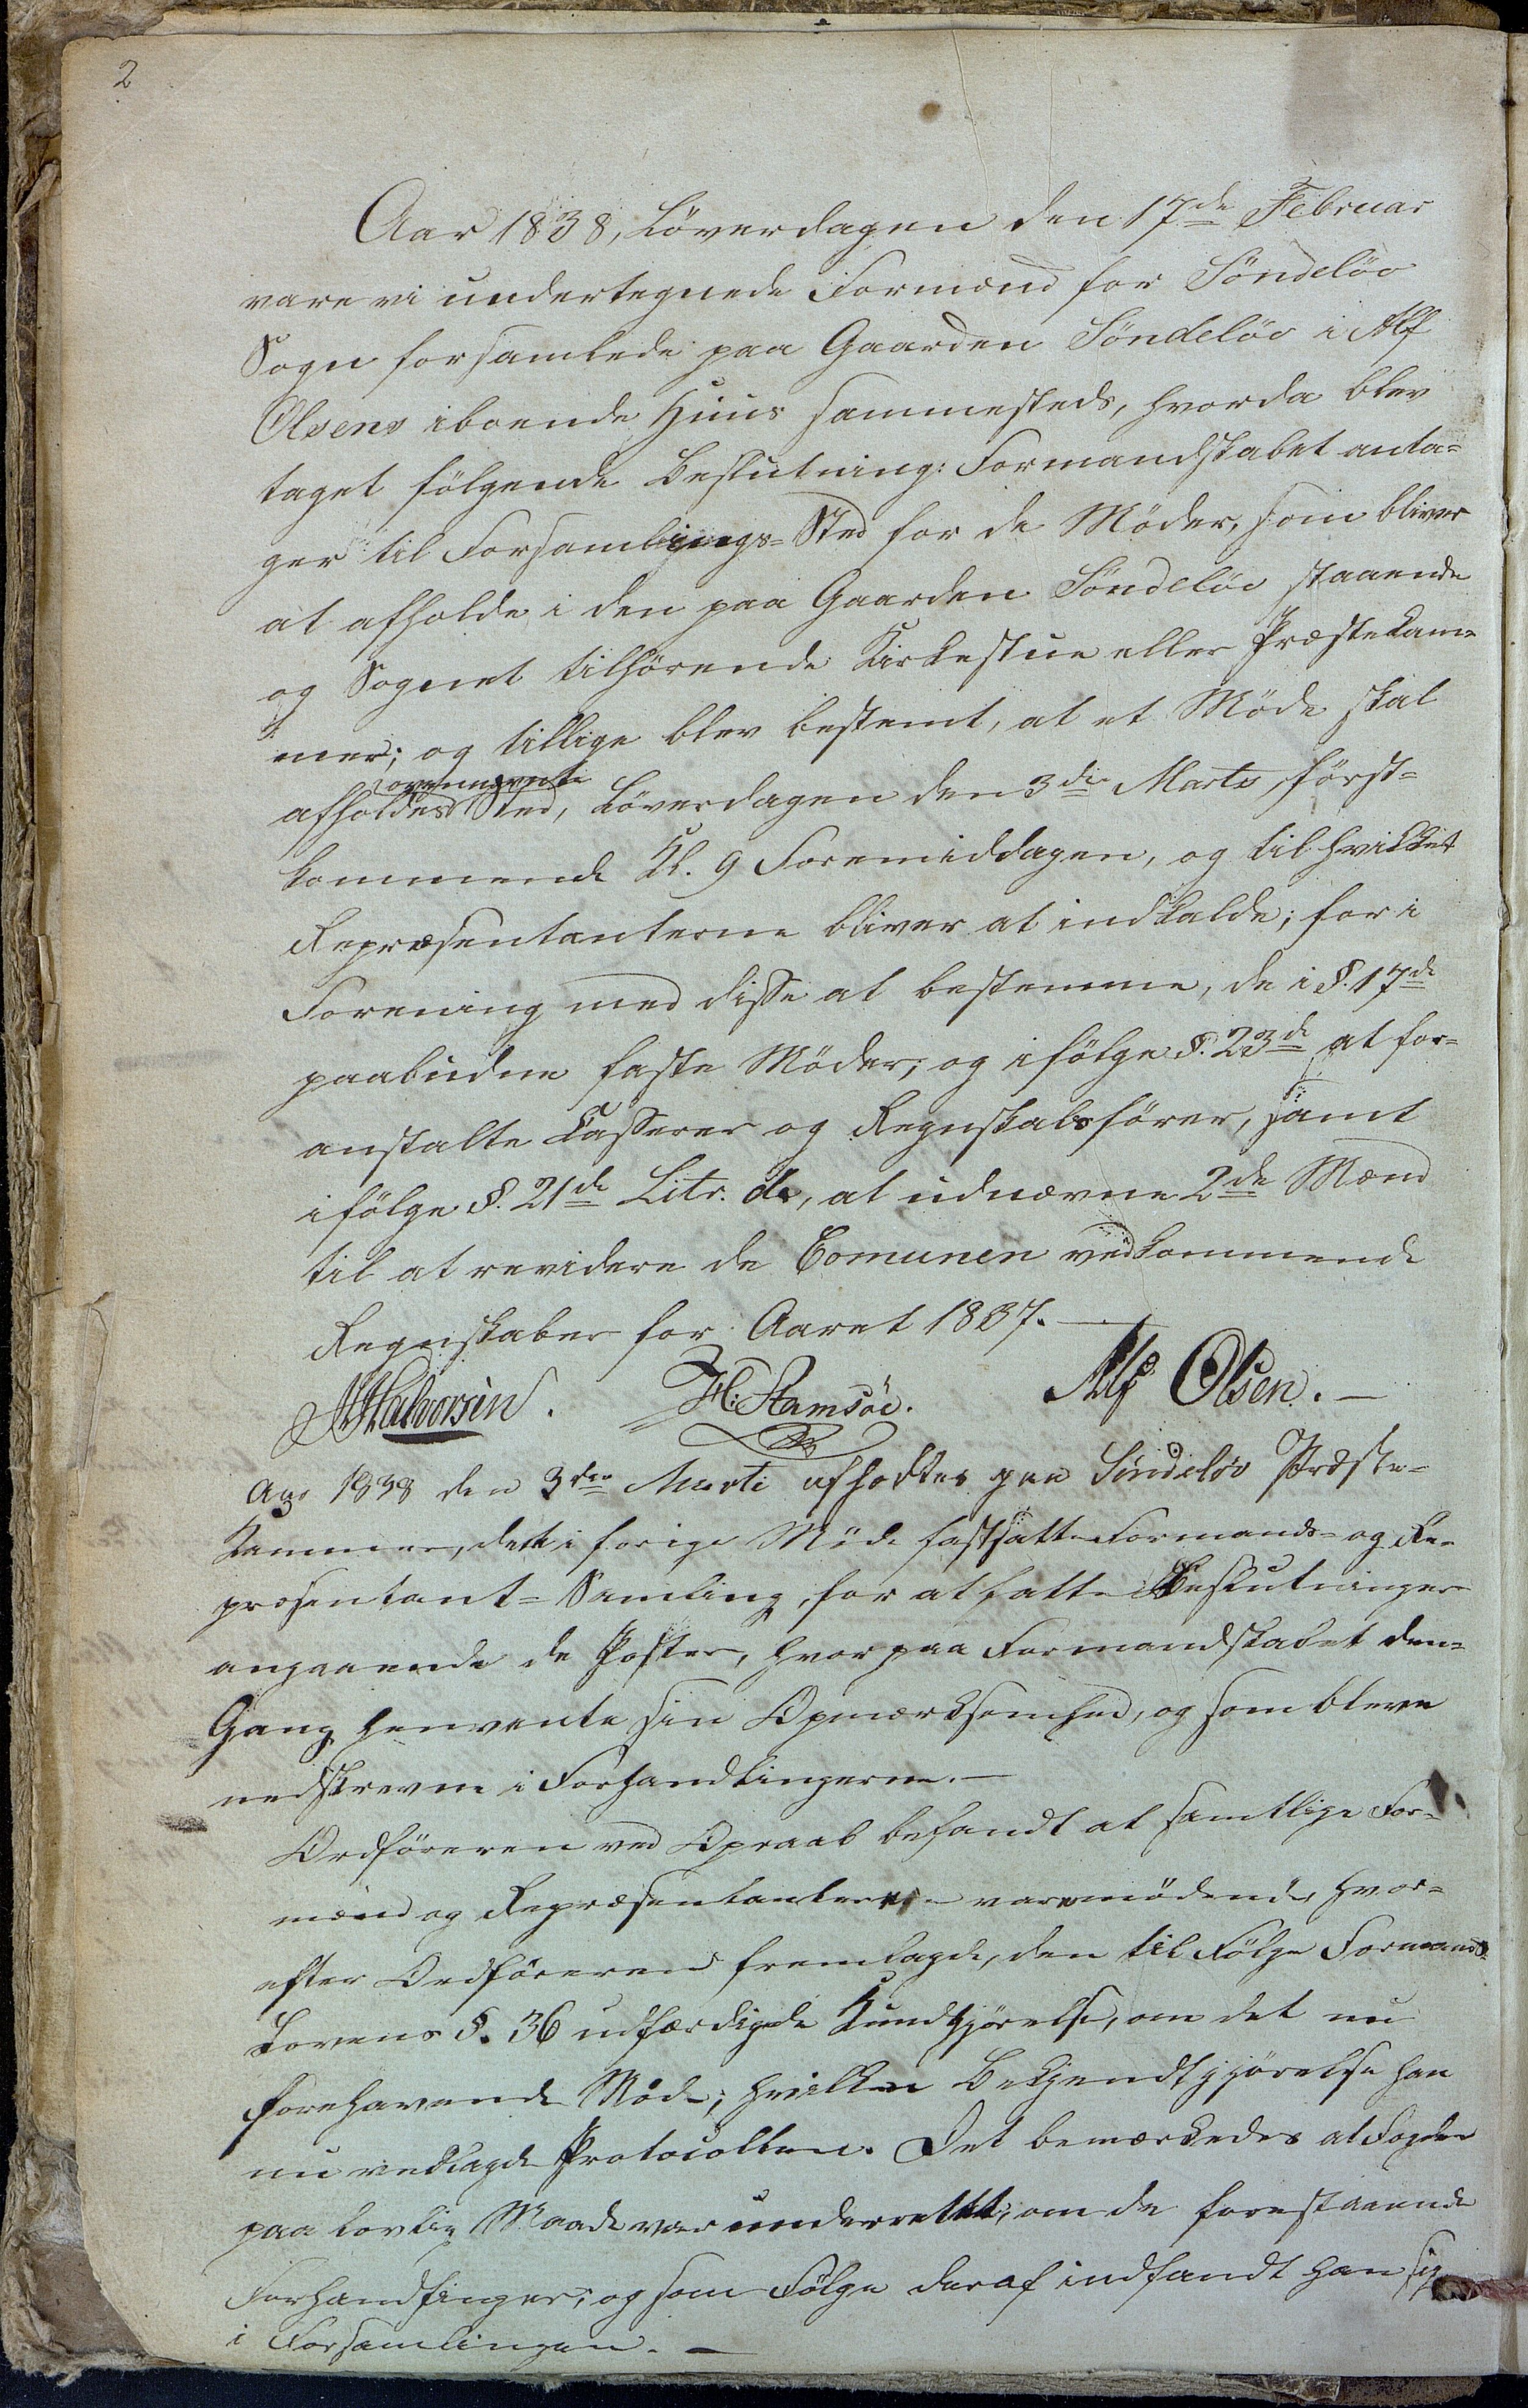 2
Aar 1838, Löverdagen den 17de Februar
vare vi undertegnede Formænd for Söndelöv
Sogn forsamlede paa Gaarden Söndelöv i Alf
Olsens iboende Huus sammesteds, hvorda blev
taget fölgende Beslutning: Formandskabet anta-
ger til Forsamlings-Sted for de Möder, som bliver
at afholde i den paa Gaarden Söndelöv staaende
og Sognet tilhörende Kirkestue eller Præstekam-
mer; og tillige blev bestemt, at et Möde skal
ovennævnte
afholdes Sted, Löverdagen den 3die Marts först-
kommende Kl. 9 Formiddagen, og til hvilket
Repræsentanterne bliver at indkalde; for i
Forening med disse at bestemme, de i §. 17de
paabudne faste Möder; og ifölge §. 23de at for-
anstalte Casserer og Regnskabsförer, samt
ifölge §. 21de Litr. d., at udnævne 2de Mænd
til at revidere de Comunen vedkommende
Regnskaber for Aaret 1837.
Halvorsen. H: Stamsöe. Alf Olsen.
Aar 1838 den 3die Marti afholdtes paa Söndelöv Præste-
Kammer, dett i forige Möde fastsatte Formands- og Re-
præsentant-Samling, for at fatte Beslutninger
angaaende de Poster, hvorpaa Formandskabet den-
Gang henvente sin Opmærksomhed, og som bleve
nedskrevne i Forhandlingerne.
Ordföreren ved Opraab befandt at samtlige For-
mænd og Repræsentantere vare mödende, hvor-
efter Ordföreren fremlagde, den til Fölge Formands-
Lovens §. 36 udfærdigede Kundgjörelse, om det nu
forehavende Möde; hvilken Bekjendtgjörelse han
nu vedlagde Protocollen. Det bemærkedes at Fogden
paa lovlig Maade var underrettet, om de forestaaende
Forhandlinger; og som Fölge deraf indfandt han sig
i Forsamlingen.